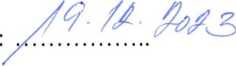 : 19.12.2023